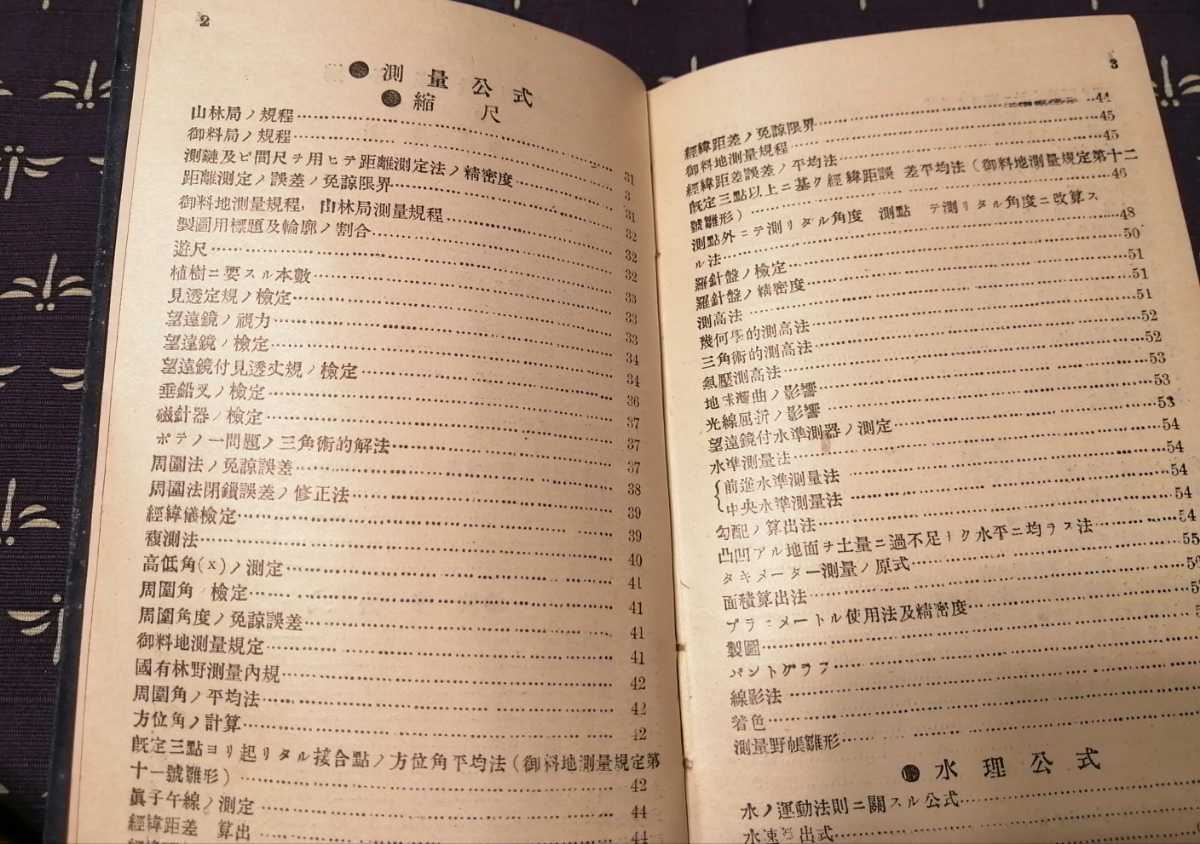 2
●測量公式
●縮尺
山林局ノ規程
御料局ノ規程 31
測鏈及ビ間尺ヲ用ヒテ距離測定法ノ精密度 3
距離測定ノ誤差ノ免諒限界 31
御料地測量規程，山林局測量規程 32
製圖用標題及輪廓ノ割合 32
遊尺 32
植樹ニ要スル本數 33
見透定規ノ檢定 33
望遠鏡ノ視力 33
望遠鏡ノ檢定 34
望遠鏡付見透丈規ノ檢定 34
垂鉛叉ノ檢定 36
磁針器ノ檢定 37
ポテノー問題ノ三角術的解法 37
周圍法ノ免諒誤差 37
周圍法閉鎖誤差ノ修正法 38
經緯儀檢定 39
複測法 39
高低角(x)ノ測定 40
周圍角 檢定 41
周圍角度ノ免諒誤差 41
御料地測量規定 41
國有林野測量內規 41
周圍角ノ平均法 42
方位角ノ計算 42
旣定三點ヨリ起リタル接合點ノ方位角平均法(御料地測量規定第 42
十一號雛形) 42
眞子午線ノ測定 44
經緯距差 算出 44
3
44
經緯距差ノ免諒限界 45
御料地測量規程 45
經緯距差誤差ノ平均法
旣定三點以上ニ基ク經緯距誤 差平均法(御料地測量規定第十二
號雛形) 46
測點外ニテ測リタル角度 測點 テ測リタル角度ニ改算ス
ル法 48
羅針盤ノ檢定 50
羅針盤ノ精密度 51
測高法 51
幾何學的測高法 51
三角術的測高法 52
氣壓測高法 52
地球彎曲ノ影響 53
光線屈折ノ影響 53
望遠鏡付水準測器ノ測定 53
水準測量法 54
前進水準測量法 54
中央水準測量法 54
勾配ノ算出法 54
凸凹アル地面ヲ土量ニ過不足ナク水平ニ均ラス法 54
タキメーター測量ノ原式 55
面積算出法
プラニメートル使用法及精密度
製圖
パントグラフ
線影法
着色
測量野帳雛形
●水理公式
水ノ運動法則ニ關スル公式
水速 出式